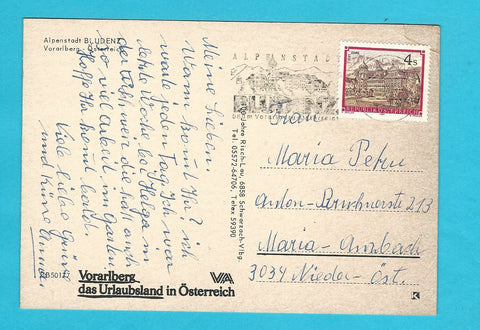 Alpenstadt BLUDENZ
Vorarlberg - Österreich
Meine Lieben.
Wann kommt Ihr? ich
warte jeden Tag. Ich war
letzte Woche bei Helga in
der Rath weil die hat auch
so viel Arbeit im Garten
Hoffe Ihr kommt bald.
Viele liebe Grüße
und Küsse
ALPENSTADT
BLUDENZ
4 S
REPUBLIK ÖSTERREICH
Frau
Maria Petru
Anton-Bruknerstr 213
Maria-Anzbach
3034 Nieder-Öst.
Risch-Lau, 6858 Schwarzach-Vlbg.
Tel. 05572-64706, Telefax 59390
Vorarlberg
das Urlaubsland in Österreich